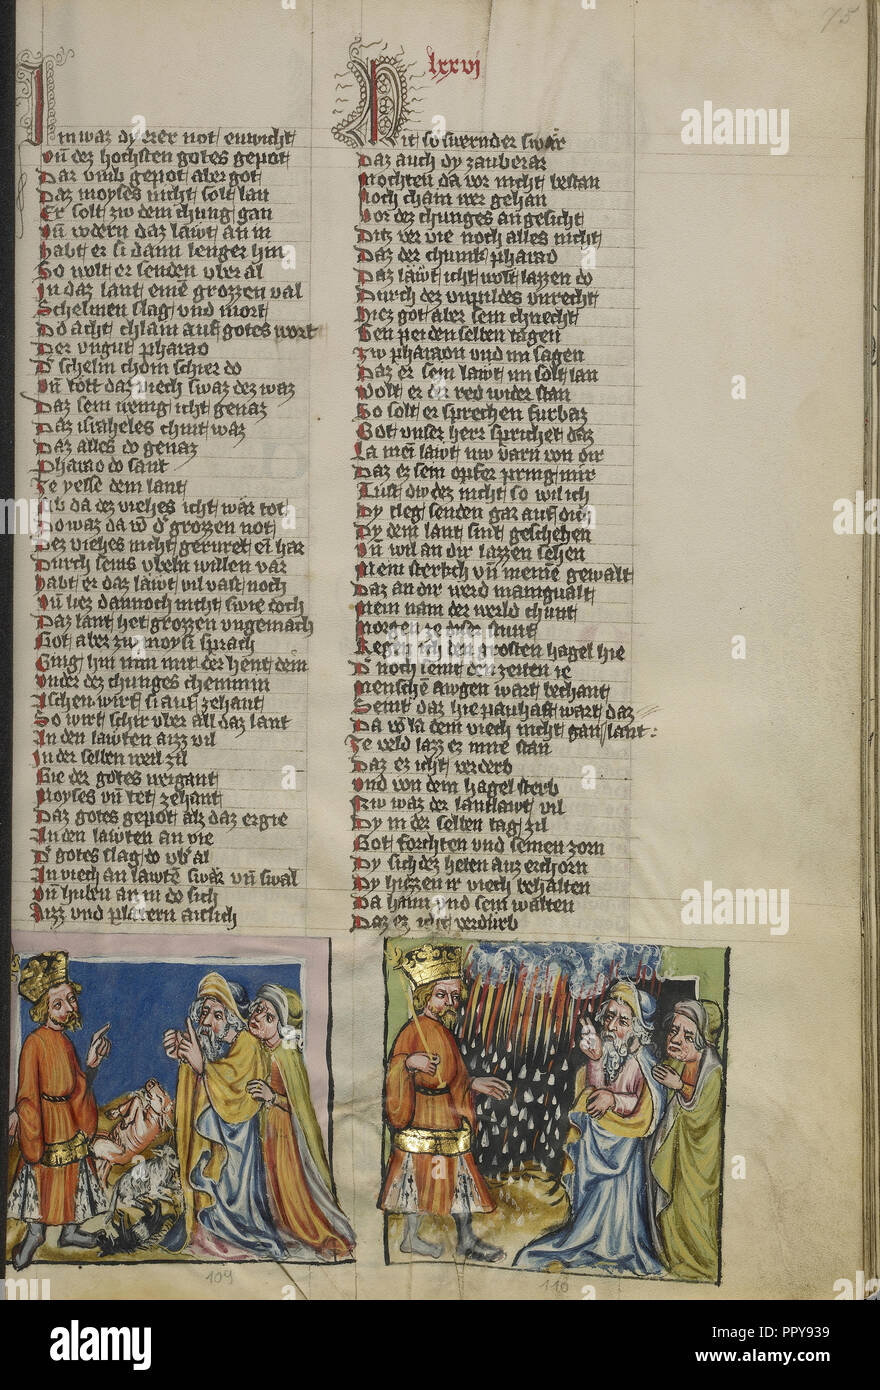 75
lxxvi
Im waz dy erer not enwicht
Vn̄ dez hochsten gotes gepot
Dar vmb gepot aber got
Daz moyses nicht solt lan
Er solt zw dem chung gan
habt er si dann lenger hin
So wolt er senden vber al
In daz lant eine grozzen val
Schelmen slag vnd mort
Do acht chlain auf gotes wort
Der vngut pharao
Dˢ schelm chom schier do
Vn̄ tott daz viech swaz dez waz
Daz sein wenig icht genaz
Daz israheles chint waz
Daz alles do genaz
Pharao do sant
Ze yesse dem lant
Ob da dez viehes icht wär tot
Do waz da vō dˢ grozzen not
Dez viehes nicht gerüret ein har
Durch seins vbeln willen var
habt er daz läwt vil vast noch
Vn̄ liez dannoch nicht swie doch
Daz lant het grozzen vngemach
Got aber zu moysi sprach
Ging hin nim mit der hent dein
Vnder dez chunges chemmin
Aschen wirf si auf zehant
So wirt schir vber all daz lant
An den lawten aizz vil
In der selben weil zil
Hie der gotes weigant
Moyses vn̄ tet zehant
Daz gotes gepot alz daz ergie
An den lawten an vie
Dˢ gotes slag do vbˢ al
An viech an lawtē swär vn̄ swal
Vn̄ huben an in do sich
Aizz vnd platern aitlich
Mit so swernder swär
Daz auch dy zauberar
Mochten da vor nicht bestan
Noch cham wer gehan
Vor dez chunges angesicht
Ditz ver vie noch alles nicht
Daz der chunik pharao
Daz läwt icht wolt lazzen do
Durch dez vnpildes vnrecht
Hiez got aber sein chnecht
Gen pei den selben tagen
Zw pharaon vnd im sagen
Daz er sein läwt im solt lan
Wolt er der red wider stan
So solt er sprechen furbaz
Got vnser herr sprichet daz
La mein läwt nw varn von dir
Daz ez sein opfer pring mir
Tust dw dez nicht so wil ich
Dy sleg senden gar auf dich
Dy dem lant sint geschehen
Vn̄ wil an dir lazzen sehen
Mein sterkch vn̄ meinē gewalt
Daz an dir werd manigualt
Mein nam der werld chunt
Morgen ze diser stunt
Regen ich den grosten hagel hie
Dˢ noch seint den zeiten ie
Menschē awgen wart bechant
Seint daz hie pauhaft wart daz
lant
Da vō la dein viech nicht gan
Ze veld lazz ez inne stan
Daz ez icht verderb
Vnd von dem hagel sterb
Nw waz der lantlawt vil
Dy in der selben tag zil
Got forchten vnd seinen zorn
Dy sich dez heten auz erchorn
Dy hiezzen ir viech behalten
Da haim vnd sein walten
Daz ez icht verdürb
109
110
alamy
alamy
Image ID: PPY939
www.alamy.com